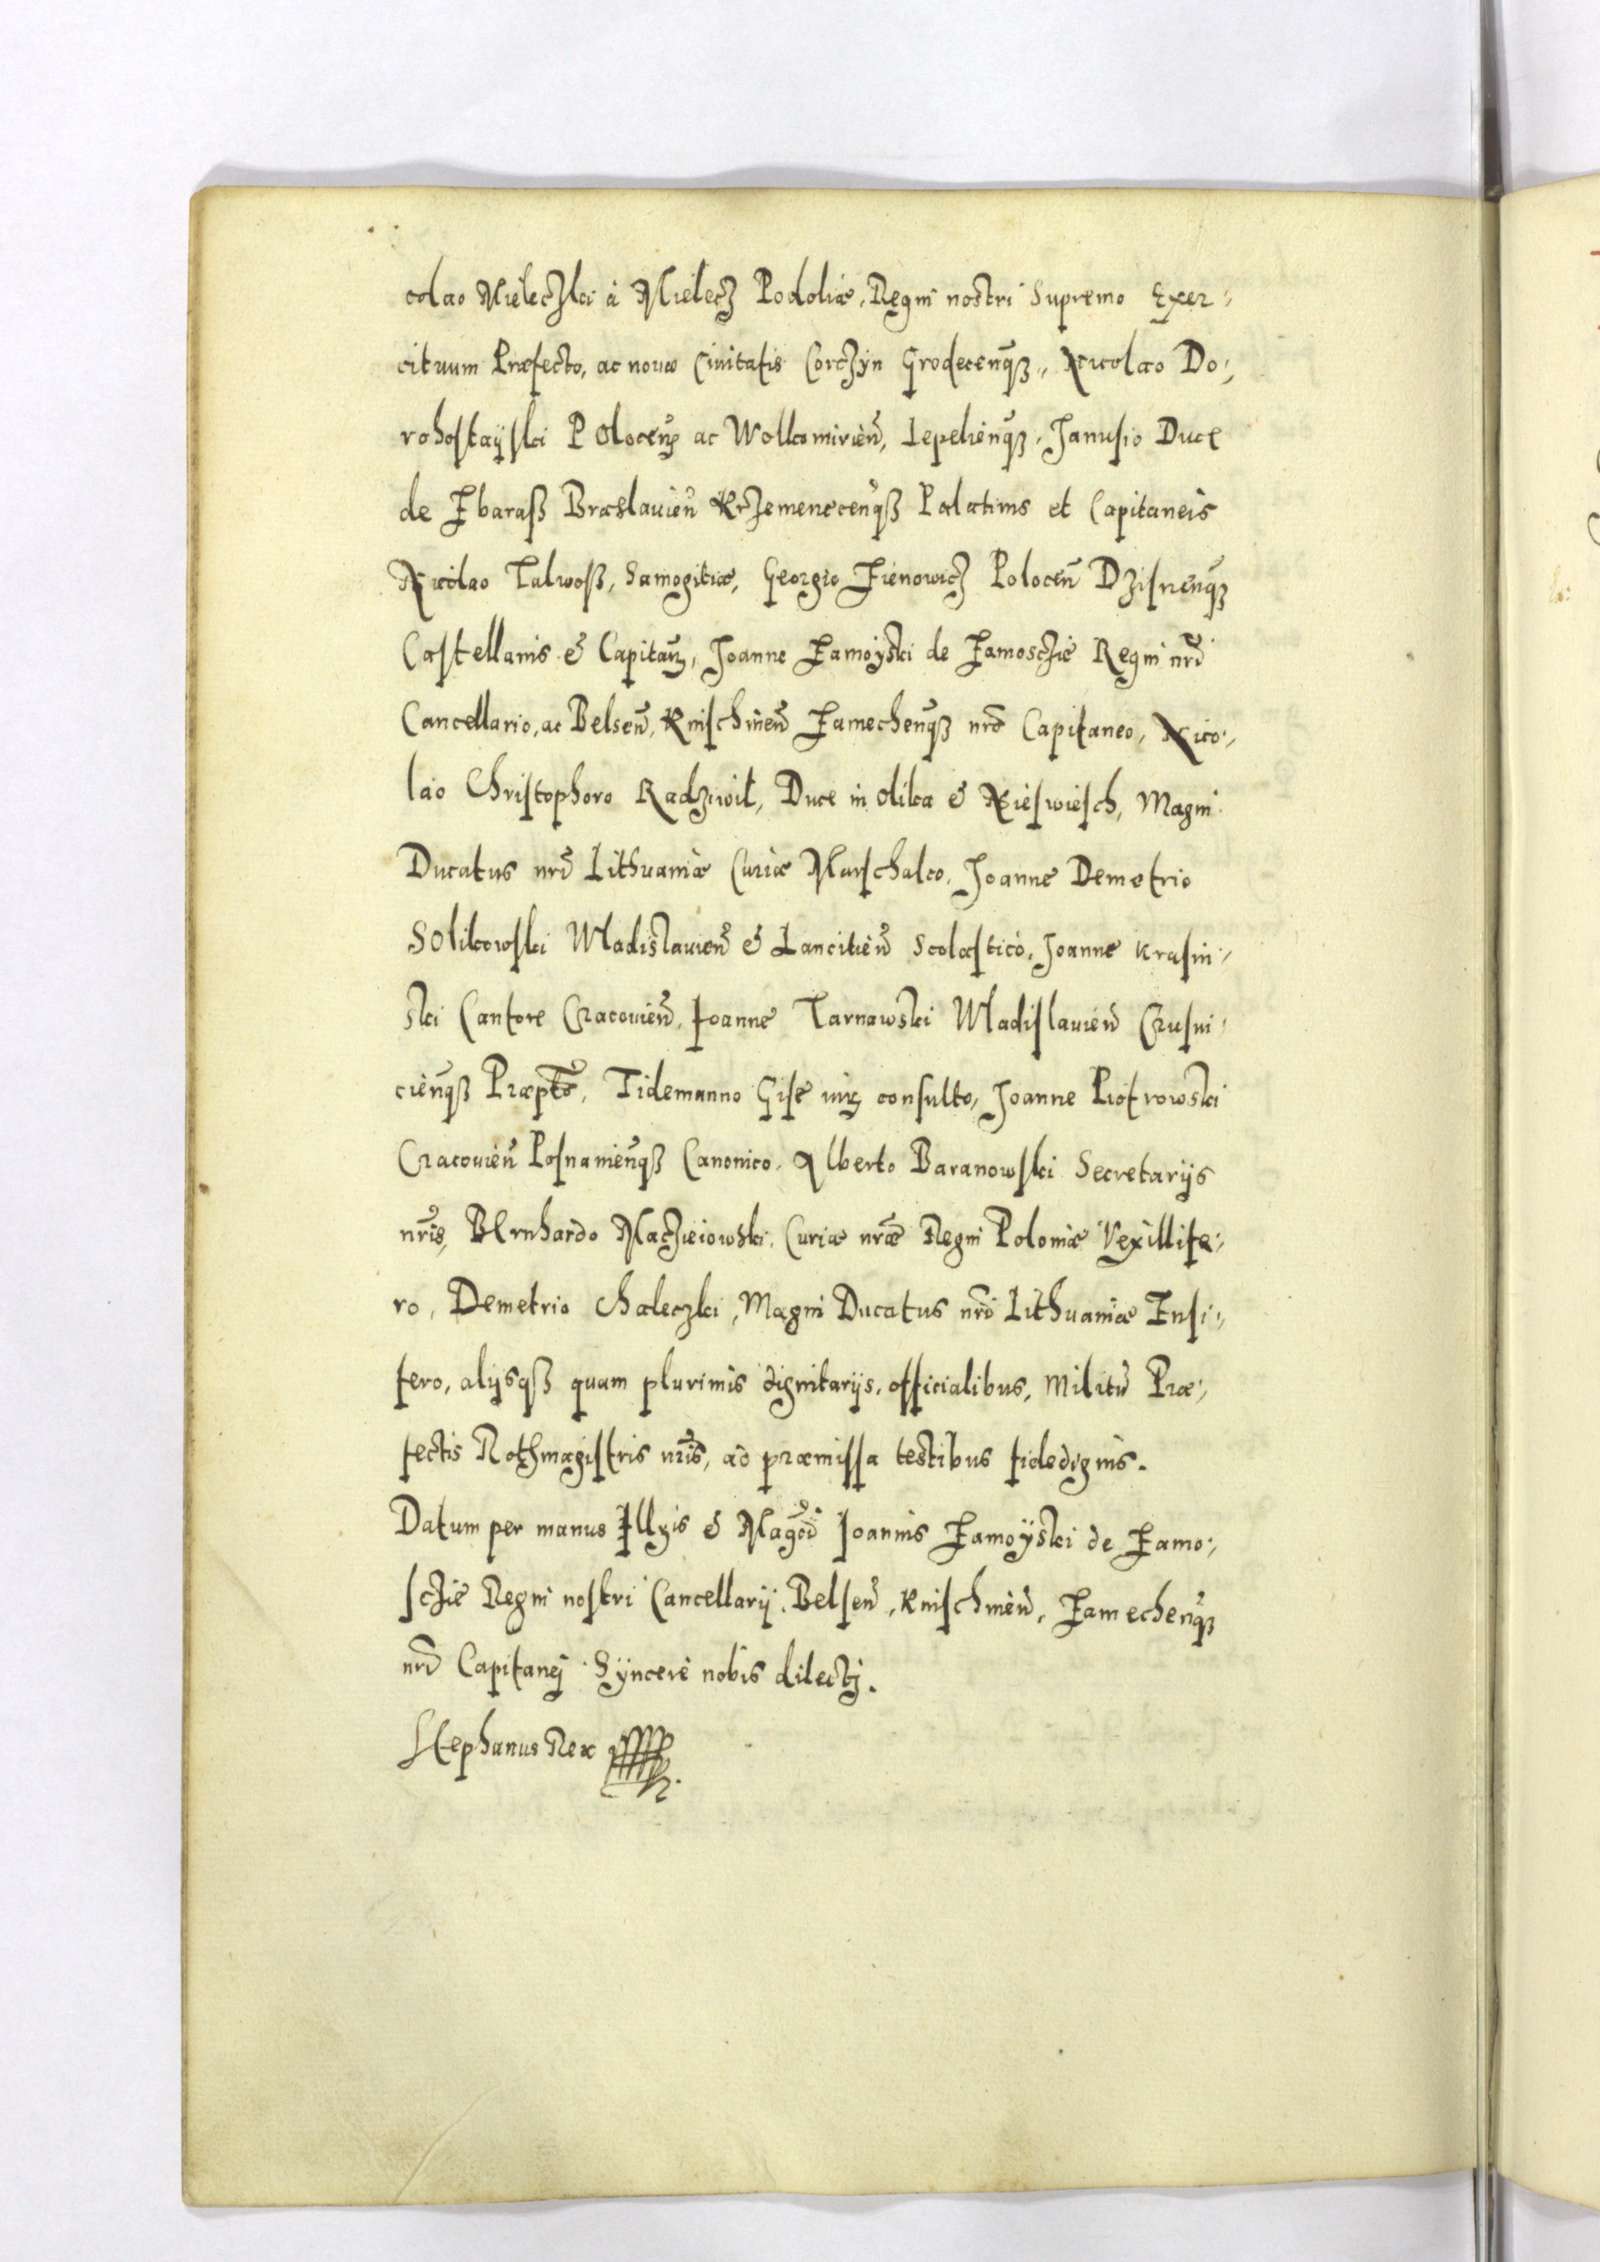 colao Mieleczki à Mielecz Podoliæ, Regni nostri Supremo Exer-
cituum Præfecto, ac nouæ Ciuitatis Corczyn Grodecen̄qȝ, Nicolao Do-
rohostayski Polocen̄ ac Wolkomirien̄, Lepelien̄qȝ, Janusio Duce
de Zbaraß Braslauien̄ Krzemenecen̄qȝ Palatinis et Capitaneis
Nicolao Talwoß, Samogitiæ, Georgio Zienowicz Polocen̄ Dzisnen̄qȝ
Castellanis & Capitan̄, Joanne Zamoyski de Zamosczie Regni nrī
Cancellario, ac Belsen̄, Knischinen̄ Zamechen̄qȝ nrō Capitaneo, Nico-
lao Christophoro Radziwil, Duce in Olika & Nieswiesch, Magni
Ducatus nrī Lithuaniæ Curiæ Marschalco, Joanne Demetrio
Solikowski Wladislauien̄ & Lancitien̄ Scolastico, Joanne Krasin-
ski Cantore Cracouien̄, Joanne Tarnowski Wladislauien̄ Crusui-
cien̄qȝ Præpto, Tidemanno Gise iurȝ consulto, Joanne Piotrowski
Cracouien̄ Posnanien̄qȝ Canonico, Alberto Baranowski Secretarijs
nrīs, Bernhardo Maczieiowski, Curiæ nræ Regni Poloniæ Vexillife-
ro, Demetrio Chaleczki, Magni Ducatus nrī Lithuaniæ Ensi-
fero, alijsqȝ quam plurimis dignitarijs, officialibus, Militū Præ-
fectis Rothmagistris nrīs, ad præmissa testibus fidedignis.
Datum per manus Illris & Magci Joannis Zamoyski de Zamo-
sczie Regni nostri Cancellarij, Belsen̄, Knischinen̄, Zamechen̄qȝ
nrī Capitanej Syncerè nobis dilectj.
Stephanus Rex